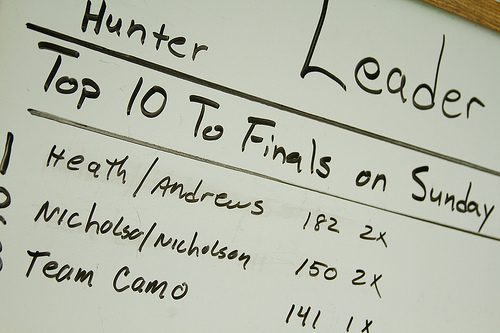 Hunter Leader
Top 10 To Finals on Sunday
1 Heath/Andrews 182 2x
Nicholso/Nicholson 150 2x
Team Camo 141 1x